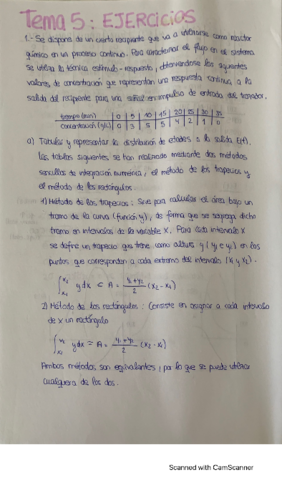 Tema 5: EJERCICIOS
1.- Se dispone de un cierto recipiente que va a utilizarse como reactor
químico en un proceso continuo. Para caracterizar el flujo en el sistema
se utiliza la técnica estímulo - respuesta, obteniéndose los siguientes
valores de concentración que representan una respuesta continua a la
salida del recipiente para una señal en impulso de entrada del trazador.
tiempo (min) 0 5 10 15 20 25 30 35
concentración (g/L) 0 3 5 5 4 2 1 0
a) Tabular y representar la distribución de edades a la salida
Las tablas siguientes se han realizado mediante dos métodos
sencillos de integración numérica; el método de los trapecios y
el método de los rectángulos.
1) Método de los trapecios: Sirve para calcular el área bajo un
tramo de la curva (función y), de forma que se
tramo en intervalos de la variable X. Para cada intervalo X
se define un trapecio que tiene como altura y1 e y2 en los
puntos que corresponden a cada extremo del intervalo (x1 y x2).
2) Método de los rectángulos: Consiste en asignar a cada intervalo
de x un rectángulo
Ambos métodos son equivalentes, por lo que se puede utilizar
cualquiera de los dos.
Scanned with CamScanner